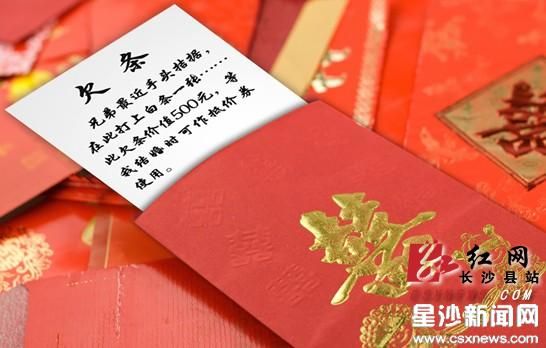 欠条
兄弟最近手头拮据，
在此打上白条一张……
此欠条价值500元，等
我结婚时可作抵价券
使用。
囍
囍
红网
长沙县站
.COM
星沙新闻网
www.csxnews.com